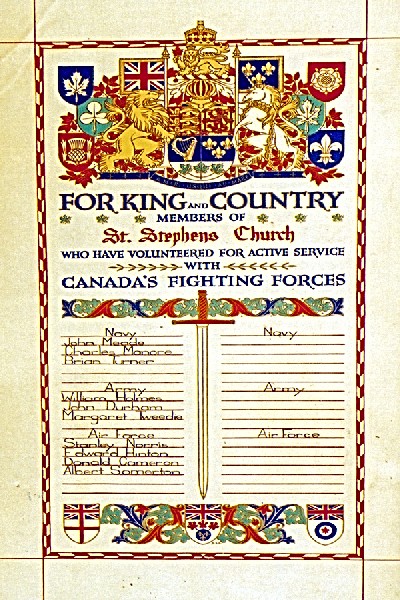 FOR KING AND COUNTRY
MEMBERS OF
St. Stephens Church
WHO HAVE VOLUNTEERED FOR ACTIVE SERVICE
WITH
CANADA'S FIGHTING FORCES
Navy
John Meade
Charles Manore
Brian Turner
Army
William Holmes
John Durham
Margaret Tweedie
Air Force
Stanley Norris
Edward Hinton
Donald Cameron
Albert Somerton
Navy
Army
Air Force